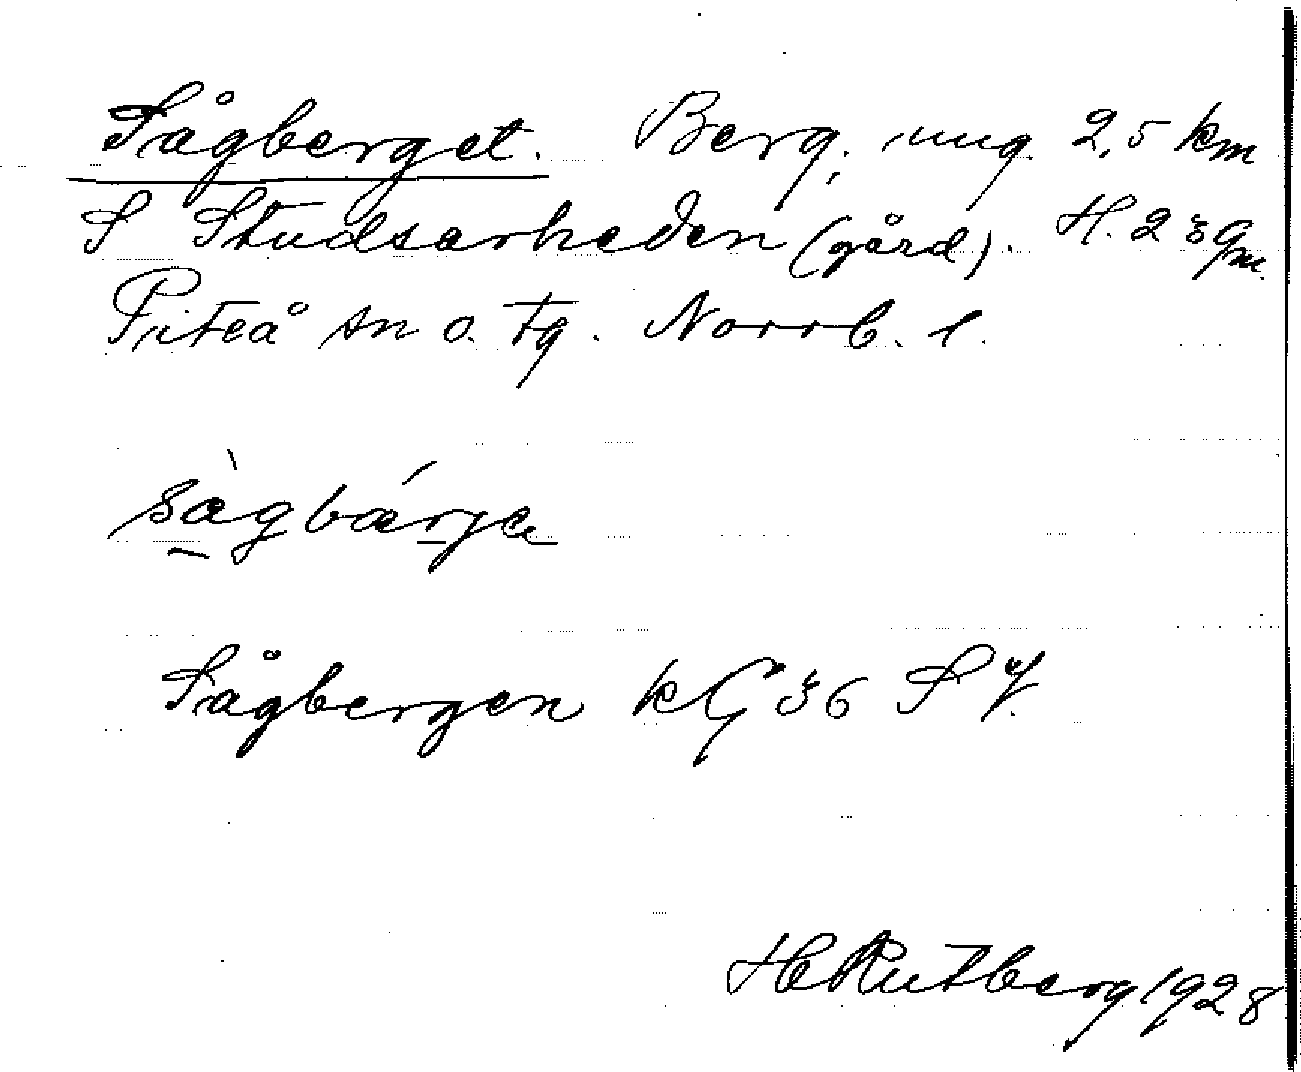 Sågberget. Berg, ung. 2,5 km
S Studsarheden (gård). H. 239 m.
Piteå sn o. tg. Norrb. l.
sàgbárja
Sågbergen kG 36 S
H Rutberg 1928